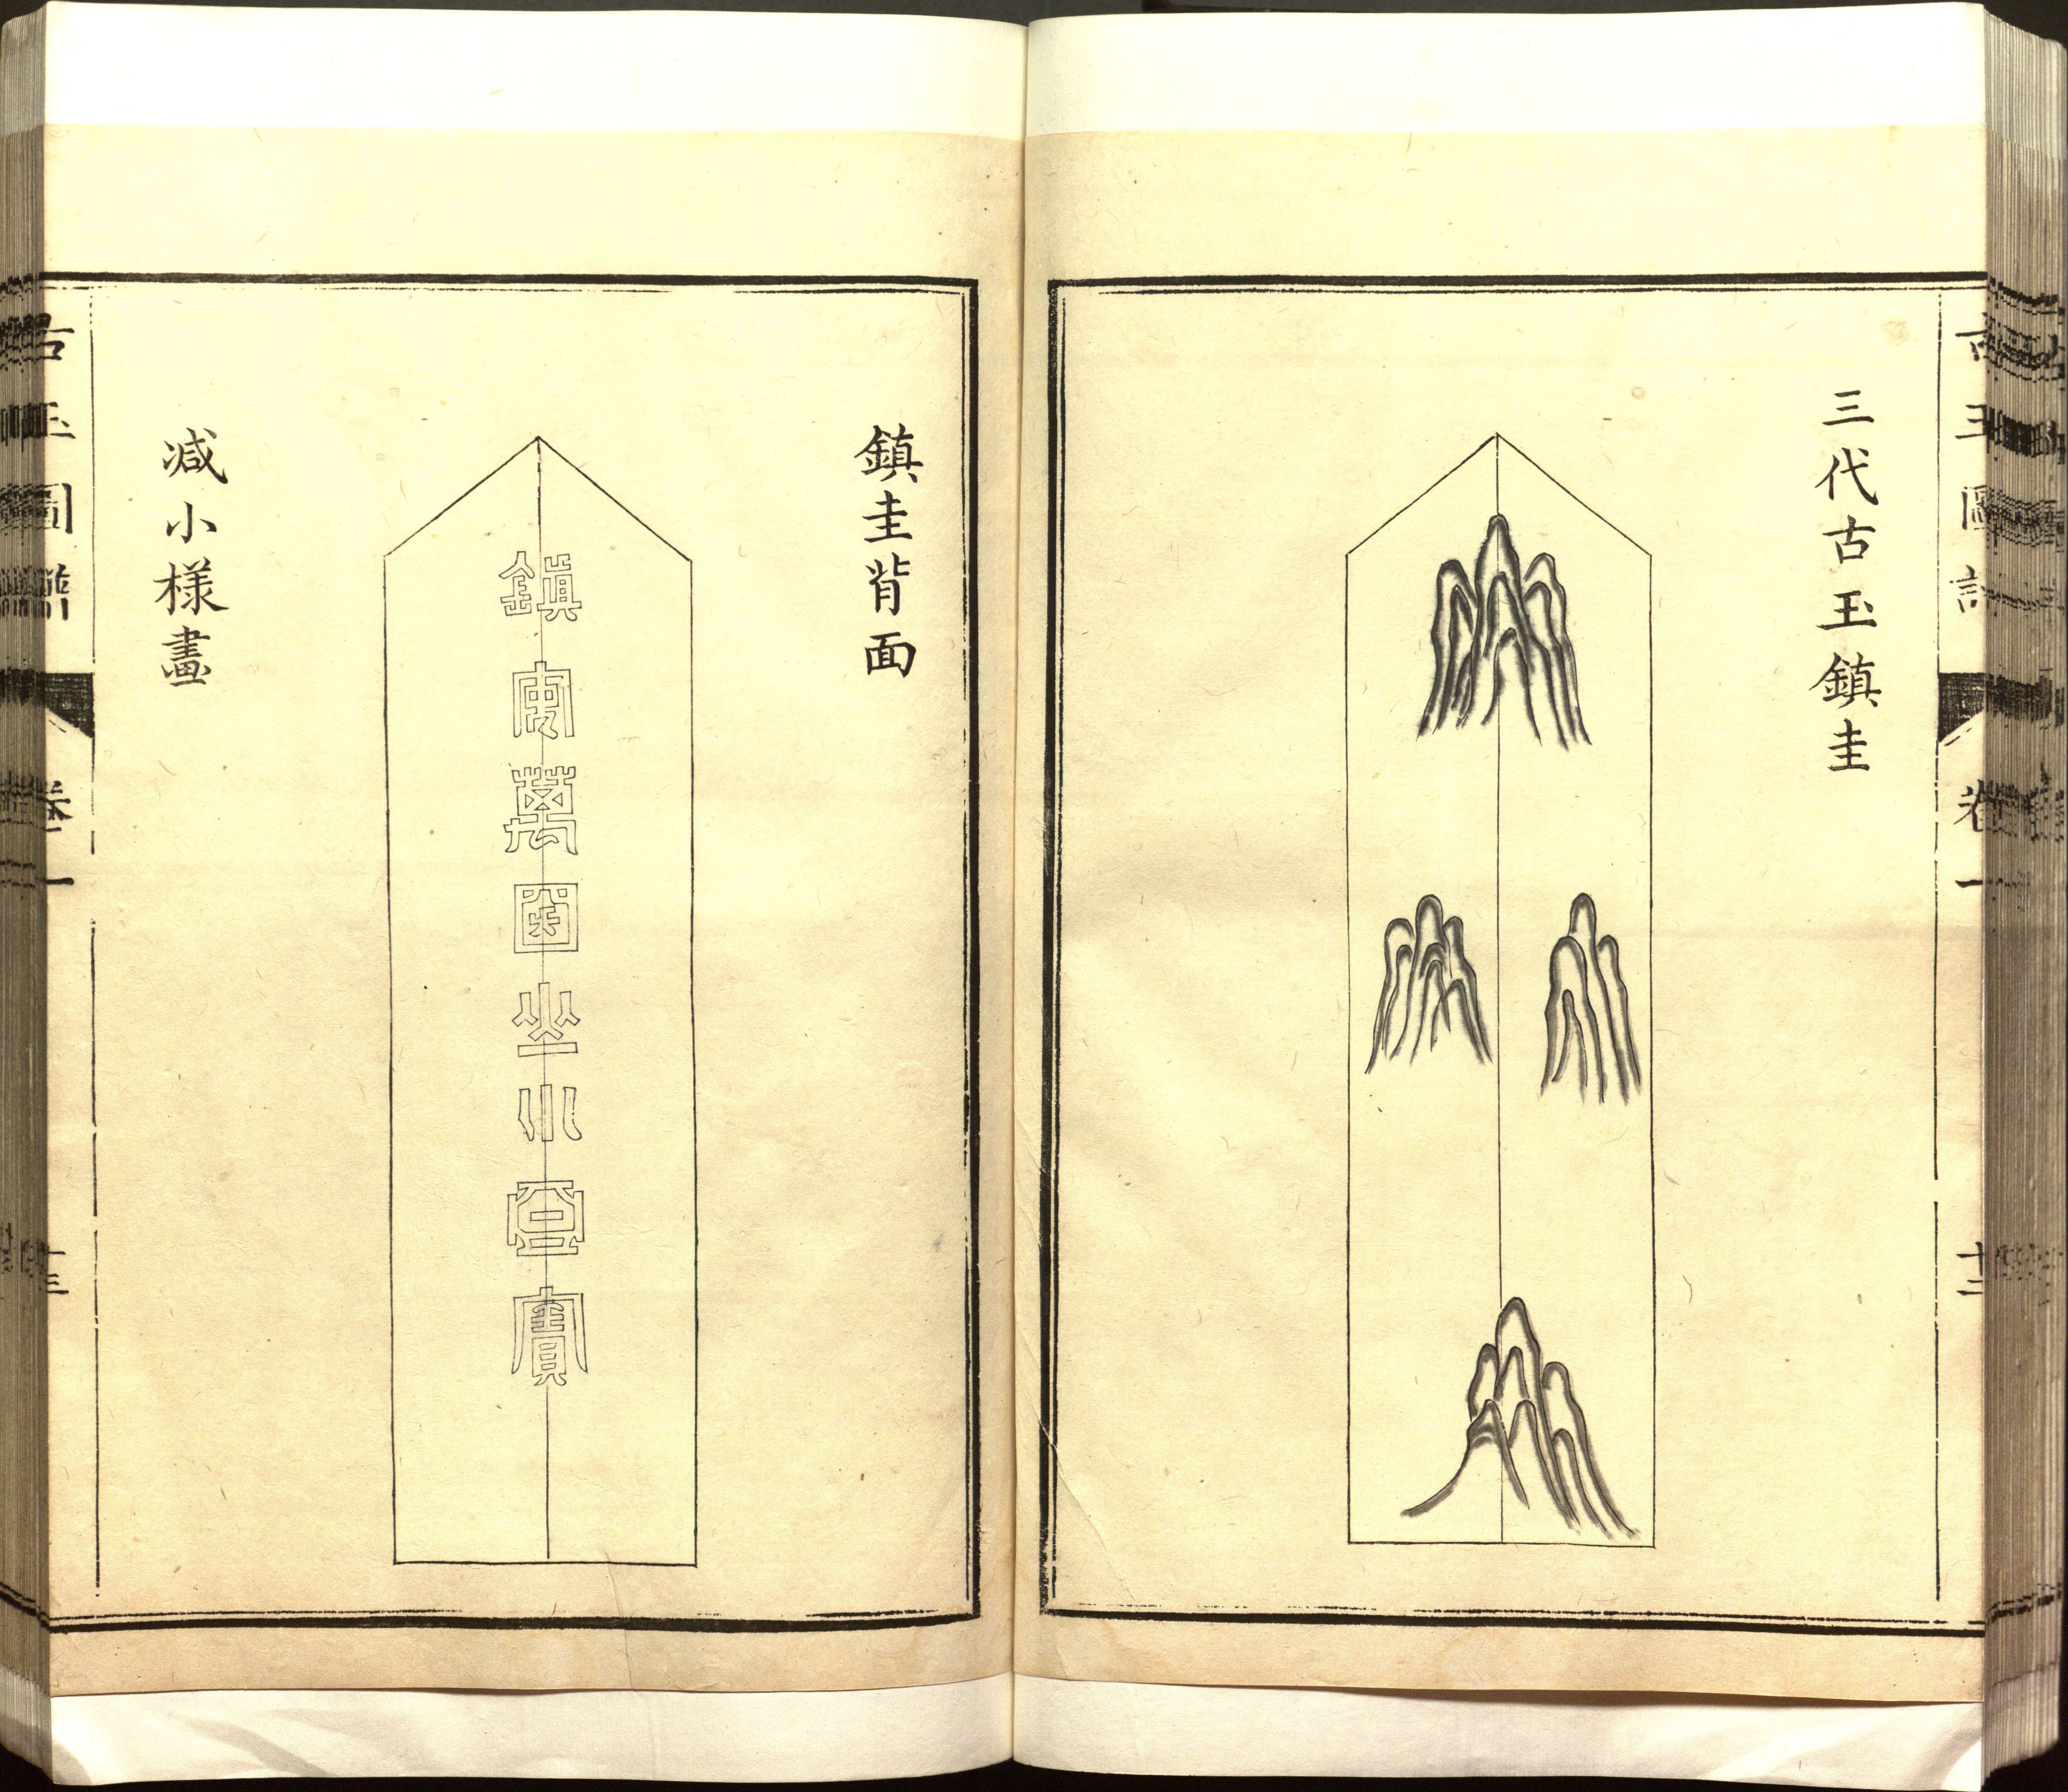 古玉圖譜 卷一 十二
三代古玉鎮圭
鎮圭背面
鎮萬國寶
減小樣畫
古玉圖譜 卷一 十三